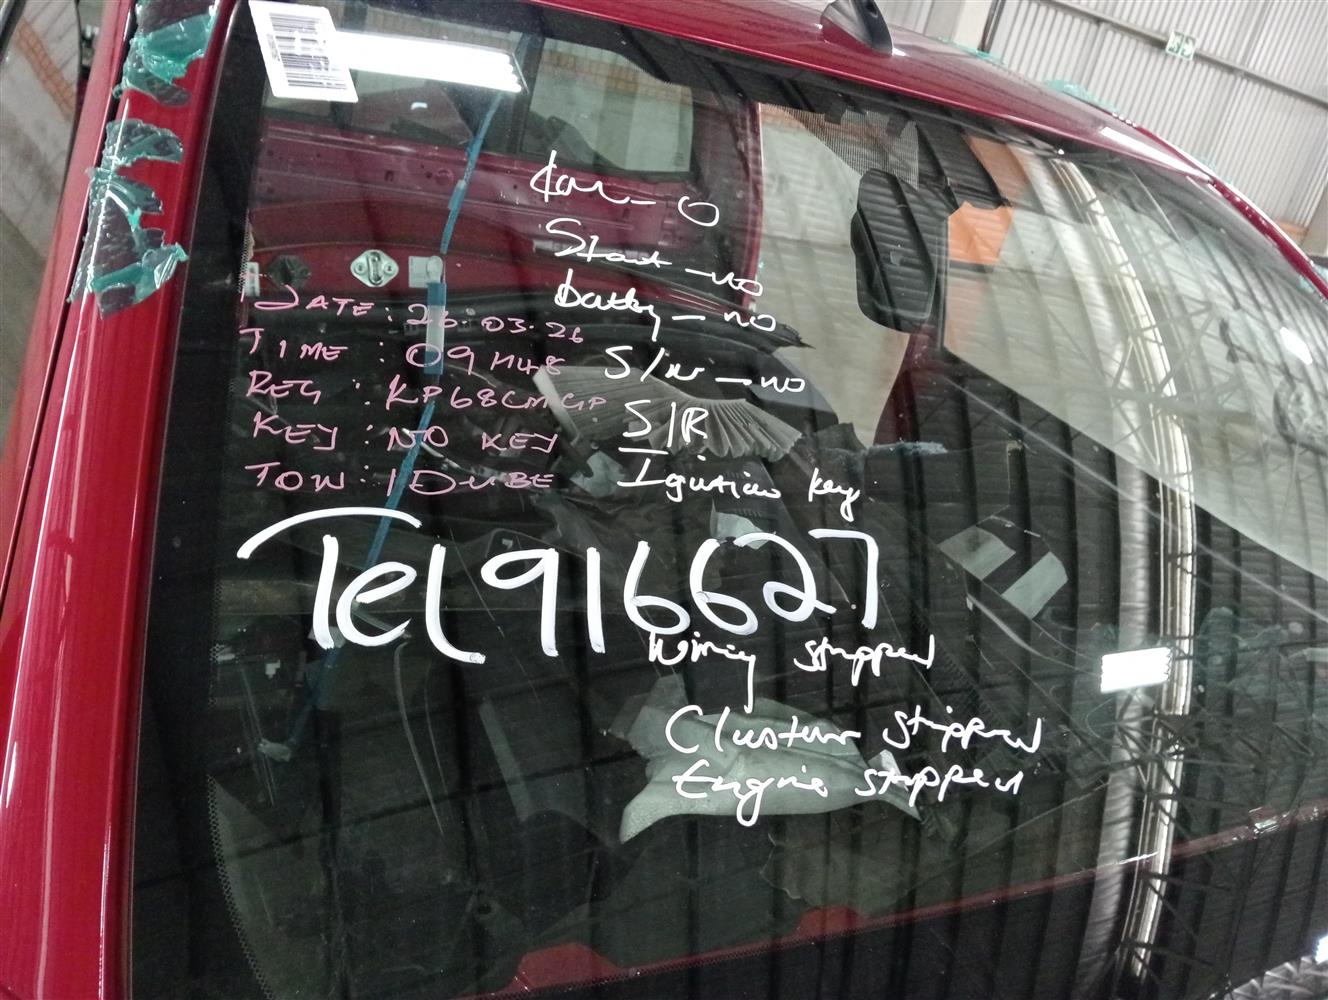 km - 0
Start - no
battery - no
DATE : 26.03.26
TIME : 09H48
S/w - no
REG : KP68CMGP
S/R
KEY : NO KEY
Ignition key
TOW : 1DUBE
Tel 916627
Wiring stripped
Cluster stripped
Engine stripped